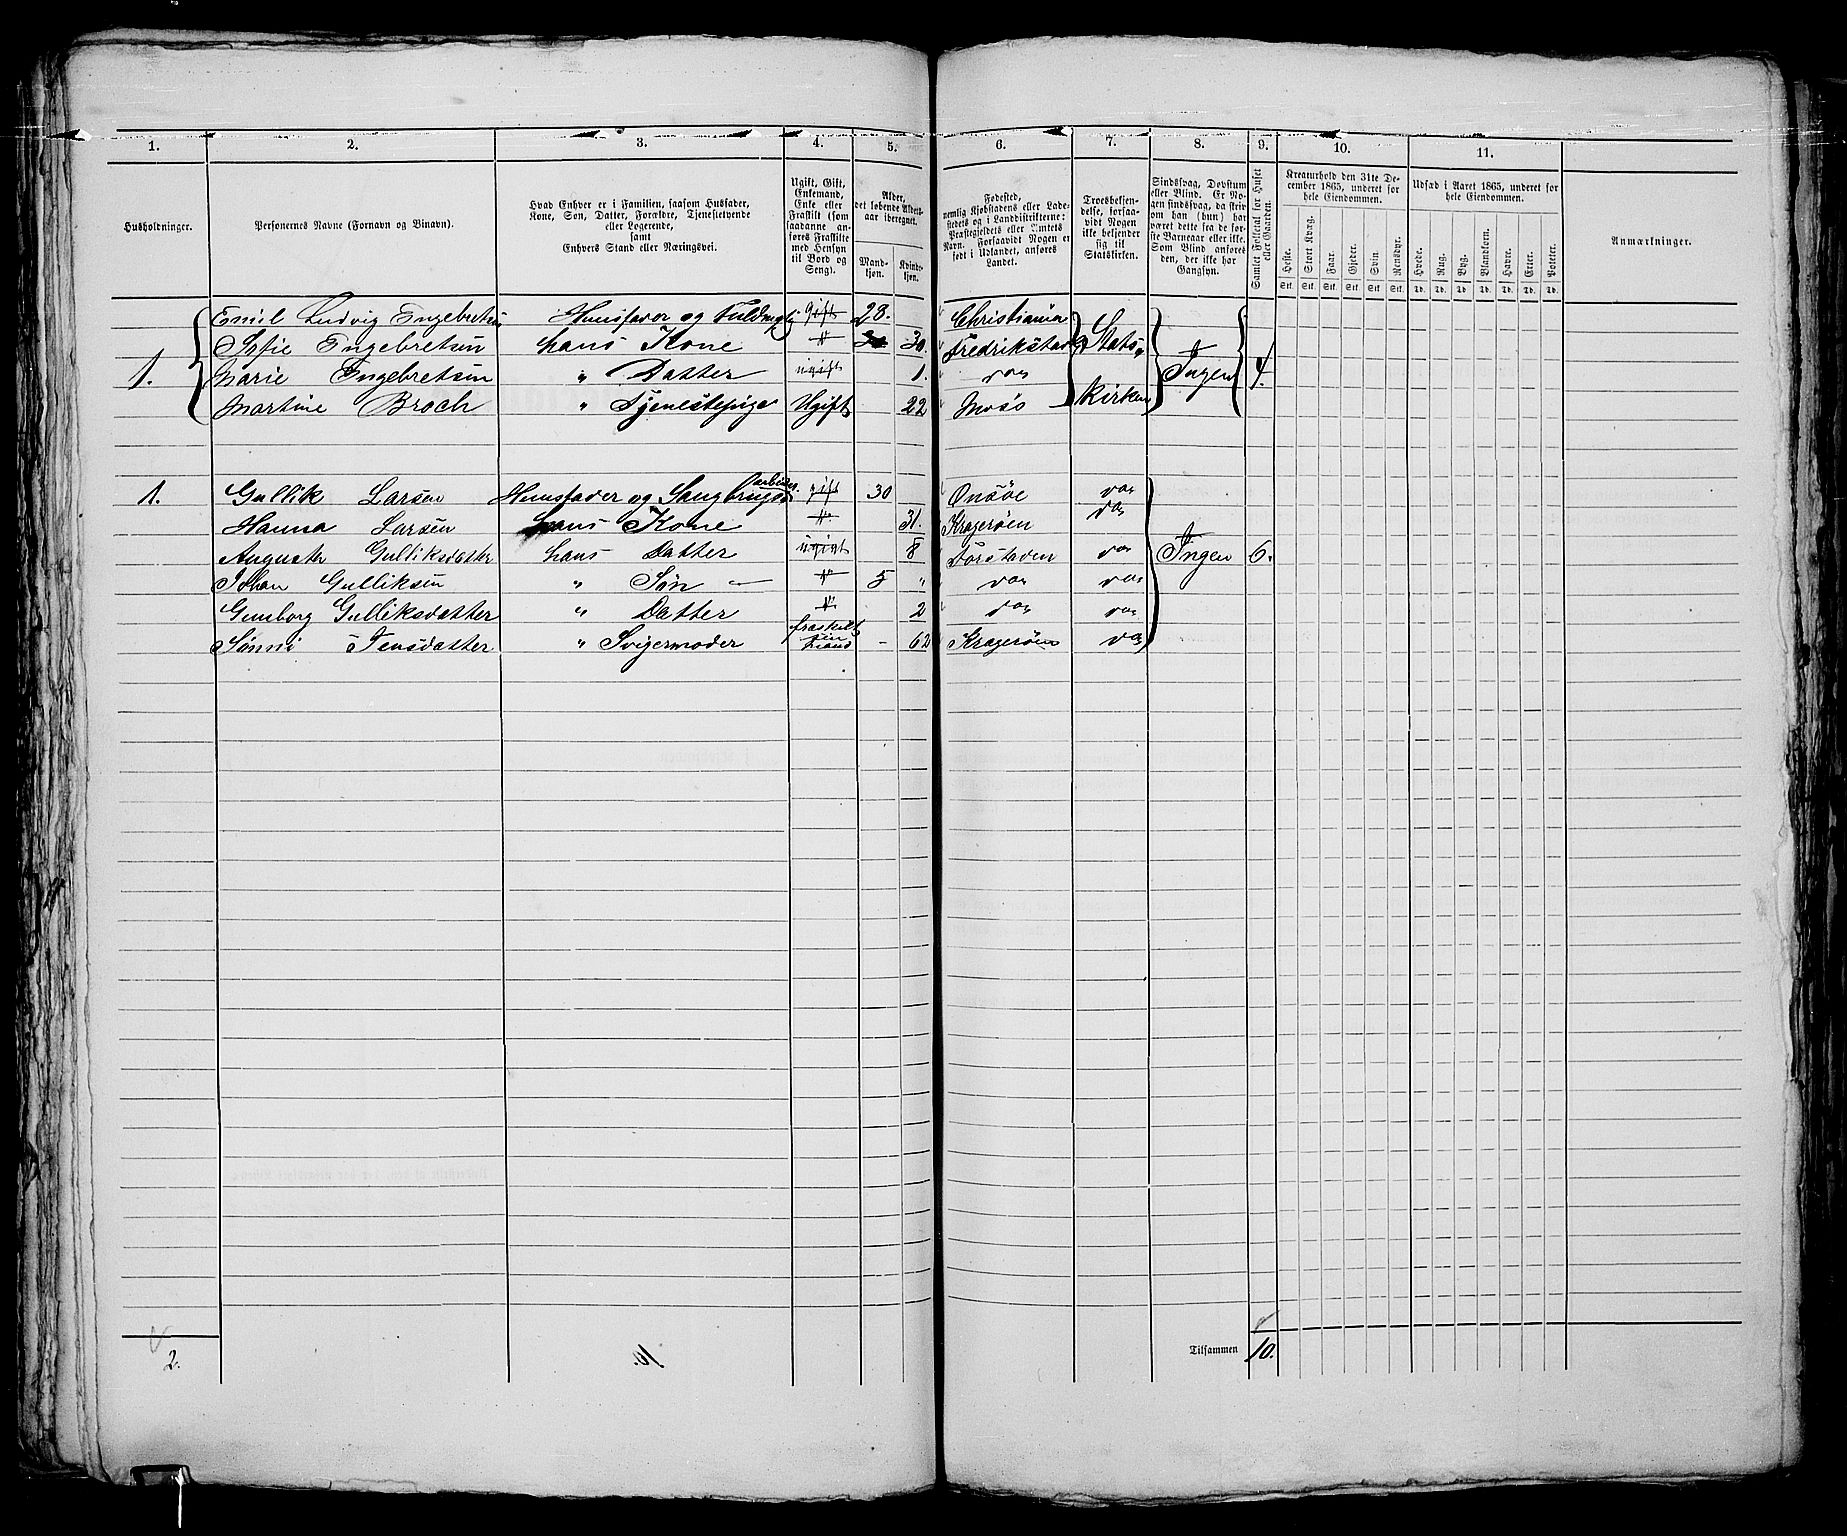 1. 2. 3. 4. 5. 6. 7. 8. 9. 10. 11.
Husholdninger.
Personernes Navne (Fornavn og Binavn).
Hvad Enhver er i Familien, saasom Husfader,
Kone, Søn, Datter, Forældre, Tjenestetyende
eller Logerende,
samt
Enhvers Stand eller Næringsvei.
Ugift, Gift,
Enkemand,
Enke eller
Fraskilt (som
saadanne an-
føres Fraskilte
med Hensyn
til Bord og
Seng).
Alder,
det løbende Alders-
aar iberegnet.
Mand-
kjøn.
Kvind-
kjøn.
Fødested,
nemlig Kjøbstadens eller Lade-
stedets og i Landdistrikterne:
Præstegjeldets eller Amtets
Navn. Forsaavidt Nogen er
født i Udlandet, anføres
Landet.
Troesbekjen-
delse, forsaa-
vidt Nogen
ikke bekjender
sig til
Statskirken.
Sindssvag, Døvstum
eller Blind. Er No-
gen sindssvag, da skri-
ves om han (hun) har
været dette fra de før-
ste Barneaar eller ikke.
Som Blind anføres
den, der ikke har
Gangsyn.
Samlet Folketal for Huset
eller Gaarden.
Kreaturhold den 31te De-
cember 1865, underet for
hele Eiendommen.
Heste. Stort Kvæg. Faar. Gjeder. Svin. Rensdyr.
Stk. Stk. Stk. Stk. Stk. Stk.
Udsæd i Aaret 1865, underet for
hele Eiendommen.
Hvede. Rug. Byg. Blandkorn. Havre. Erter. Poteter.
Td. Td. Td. Td. Td. Td. Td.
Anmærkninger.
Emil Ludvig Engebretsen Huusfader og Fuldmegtig gift 28. Christiania
Sofie Engebretsen hans Kone " 30. Fredrikstad Stats-
1. Marie Engebretsen " Datter ugift 1. do Ingen 4.
Martine Broch " Tjenestepige Ugift 22 Moss kirken
1. Gullik Larsen Huusfader og Saugbrugsarbeider gift 30 Onsøe do
Hanna Larsen hans Kone " 31. Kragerøen do
Augusta Gulliksdatter hans Datter ugift 8 Forstaden do Ingen 6.
Johan Gulliksen " Søn — " 5 " do do
Gunborg Gulliksdatter " Datter " 2 do do
Jensdatter " Svigermoder fraskilt sin Mand - 62 Kragerøen do
2. 10. Tilsammen 10.